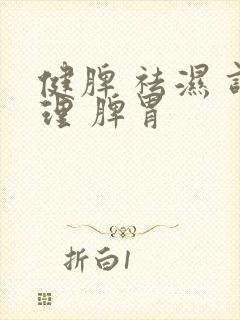 健脾祛濕
理脾胃
折白1